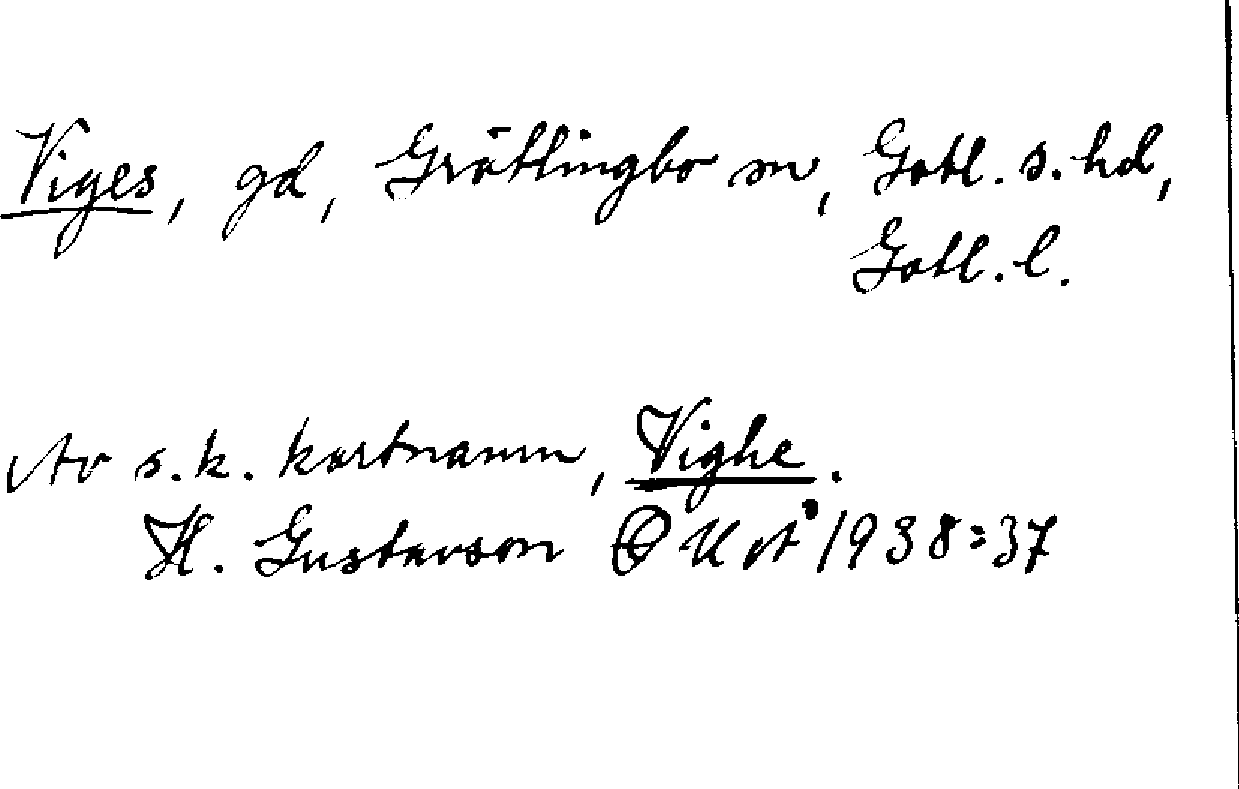 Viges, gd, Grötlingbo sn, Gotl. s. hd,
Gotl. l.
Av s.k. kortnamn, Vighe.
H. Gustavson OUÅ 1938:37